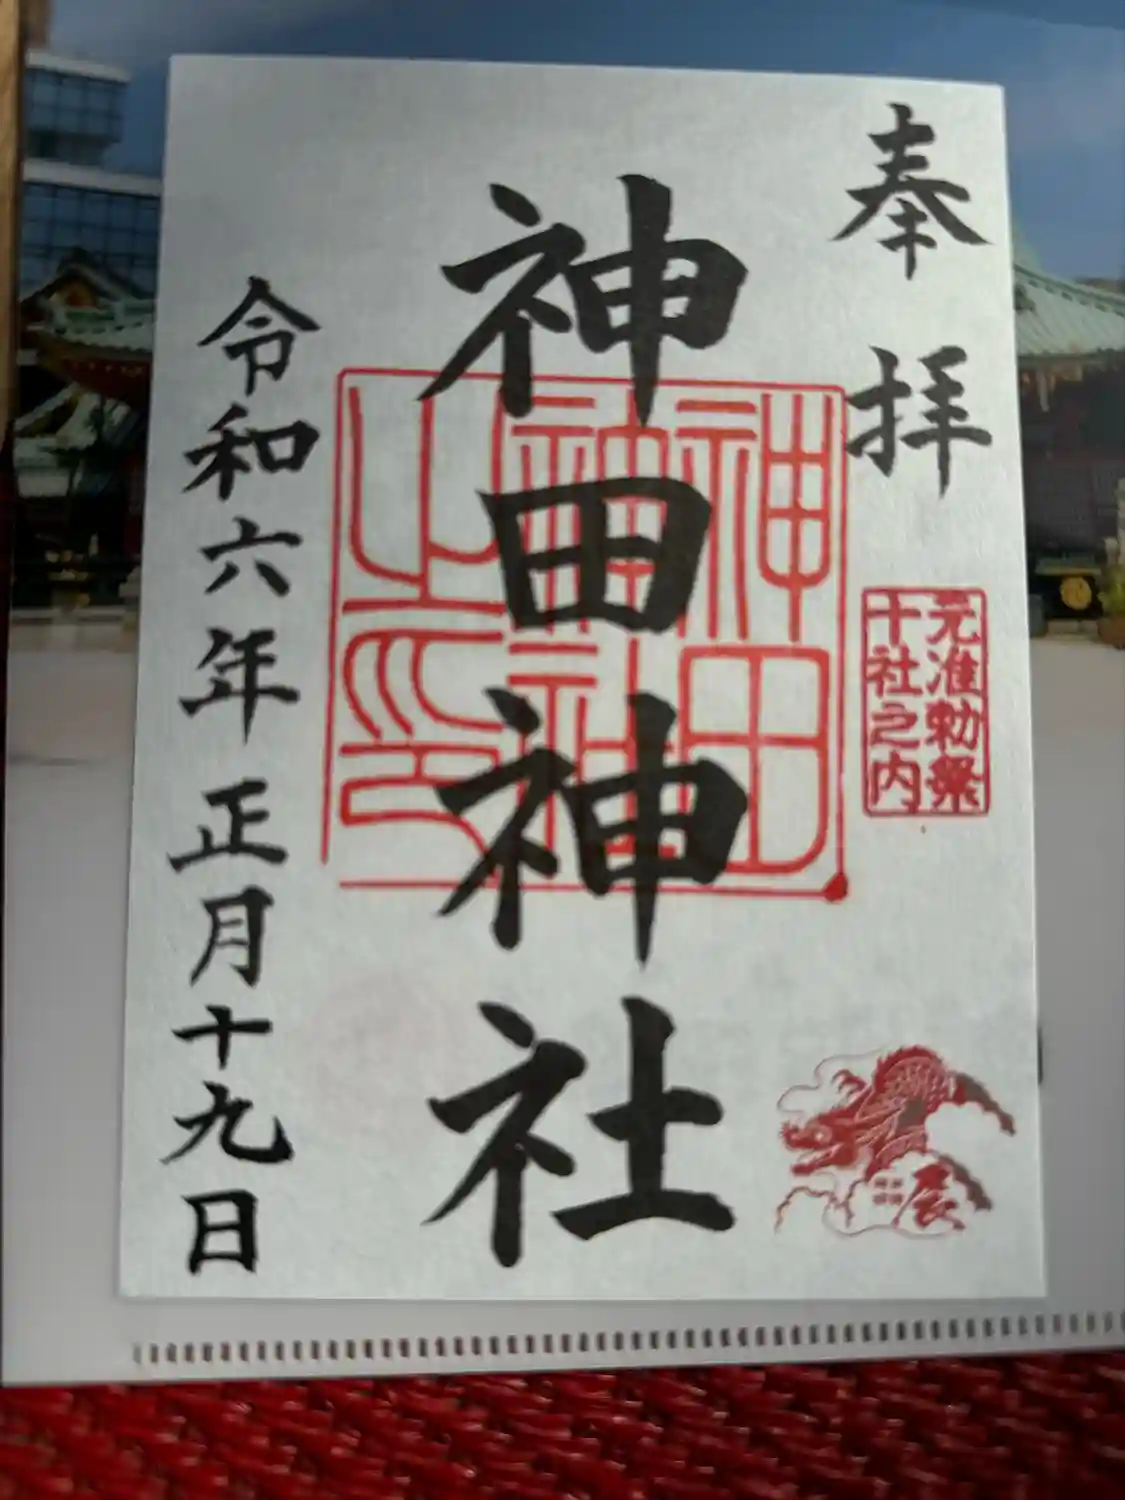 奉拝
元准勅祭
十社之内
辰
神田神社
神田
神社
之印
令和六年正月十九日